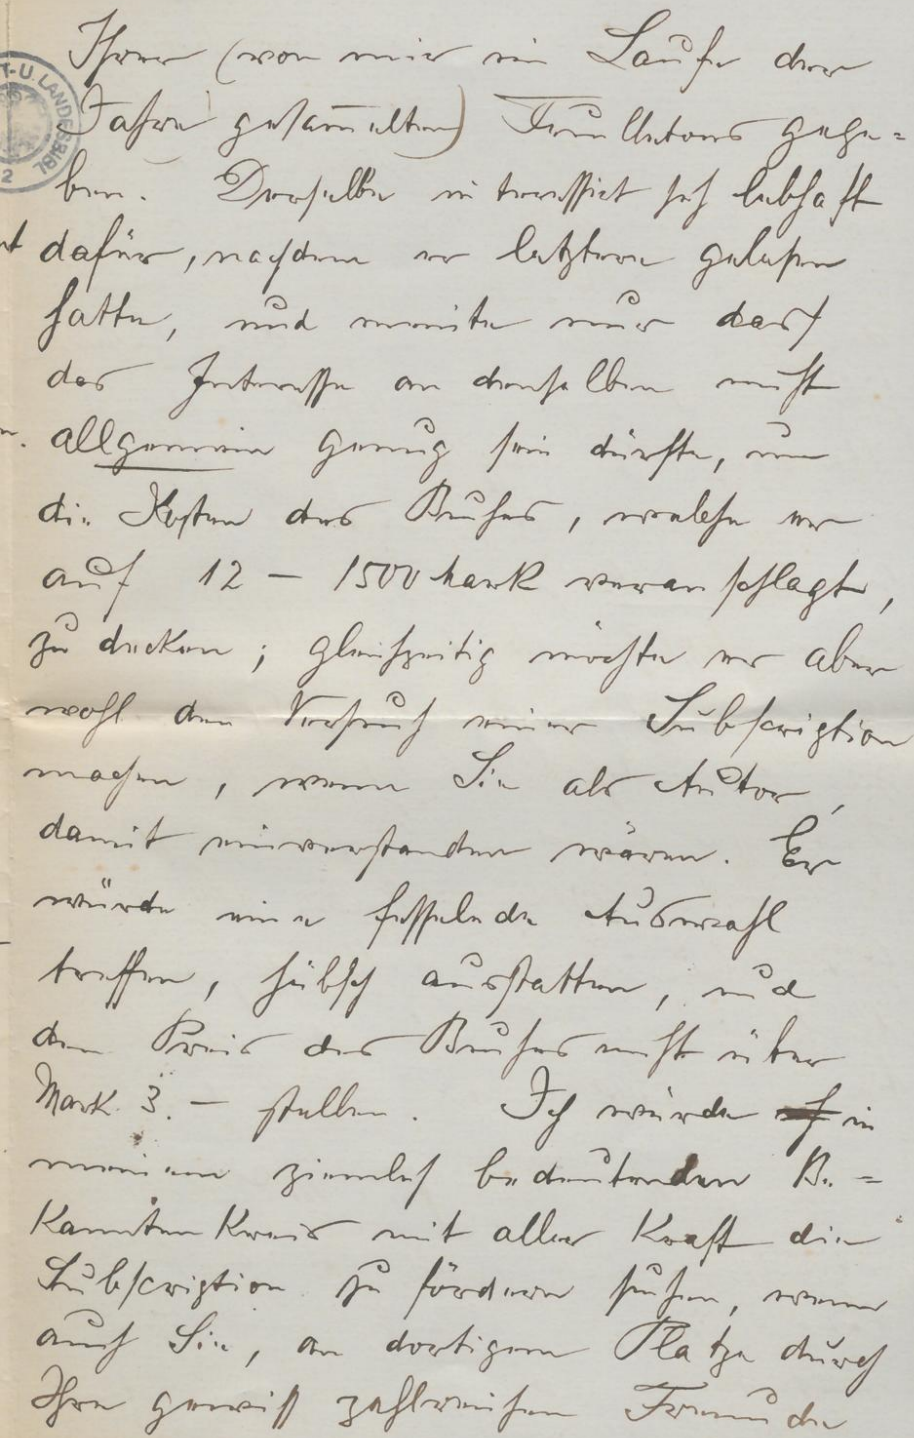 Ihrer (von mir im Laufe der
Jahre gesam̅elten) Feuilletons gege=
ben. Derselbe interessiert sich lebhaft
dafür, nachdem er letztere gelesen
hatte, und meinte nur dass
das Interesse an denselben nicht
allgemein genug sein dürfte, um
die Kosten des Buches, welche er
auf 12 – 1500 Mark veranschlagt,
zu decken; gleichzeitig möchte er aber
wohl den Versuch einer Subscription
machen, wenn Sie als Autor,
damit einverstanden wären. Er
würde eine fesselnde Auswahl
treffen, hübsch ausstatten, und
den Preis des Buches nicht über
Mark 3.– stellen. Ich würde in
meinem ziemlich bedeutenden Be=
kanntenkreis mit aller Kraft die
Subscription zu fördern suchen, wenn
auch Sie, an dortigem Platze durch
Ihre gewiss zahlreichen Freunde
T.-U. LANDESBIBL
2